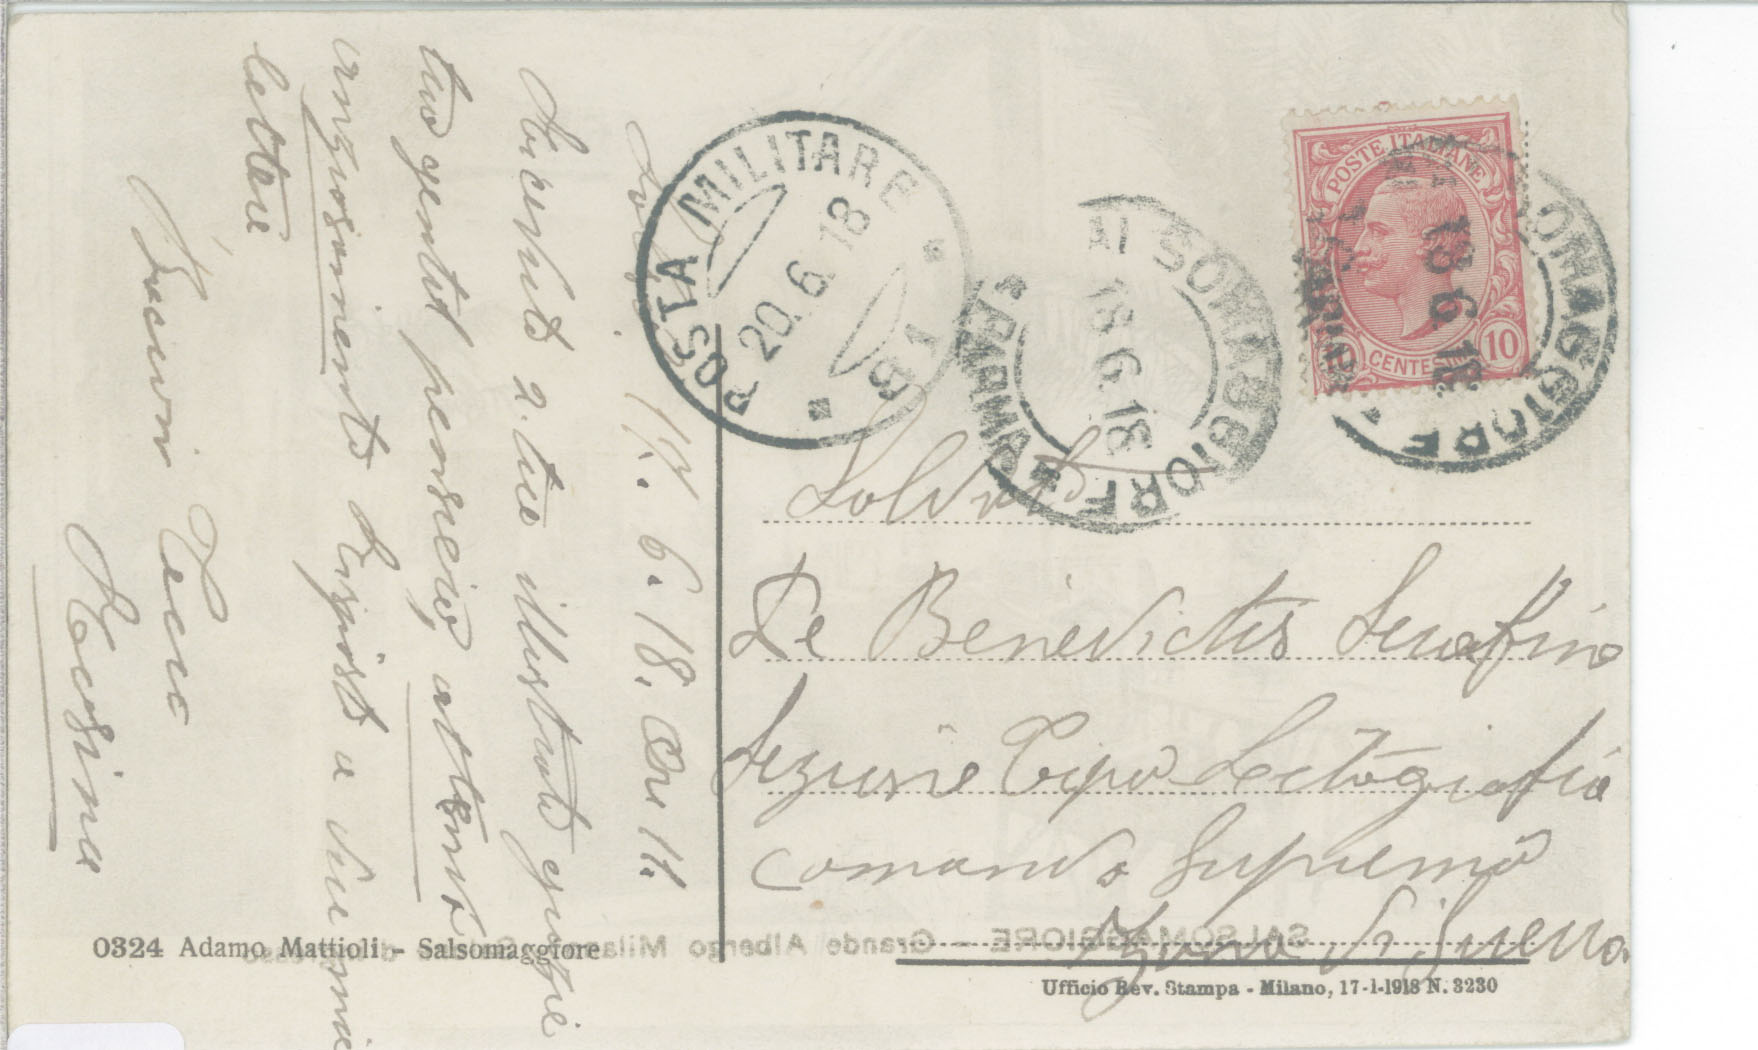 17. 6. 18. Ore 11.
Ricevuto 2. tue illustrate grazie
tuo gentil pensiero, attendo
ansiosamente risposta a due mie
lettere
Bacioni Tuo
POSTA MILITARE
20.6.18
91
SALSOMAGGIORE
PARMA
18.6.18
SALSOMAGGIORE
18.6.18
POSTE ITALIANE
CENTESIMI
10
Soldato
De Benedictis Serafino
Sezione Tipo Litografia
Comando Supremo
Zona di Guerra
0324 Adamo Mattioli - Salsomaggiore
SALSOMAGGIORE - Grande Albergo Milano
Ufficio Rev. Stampa - Milano, 17-1-1918 N. 3230